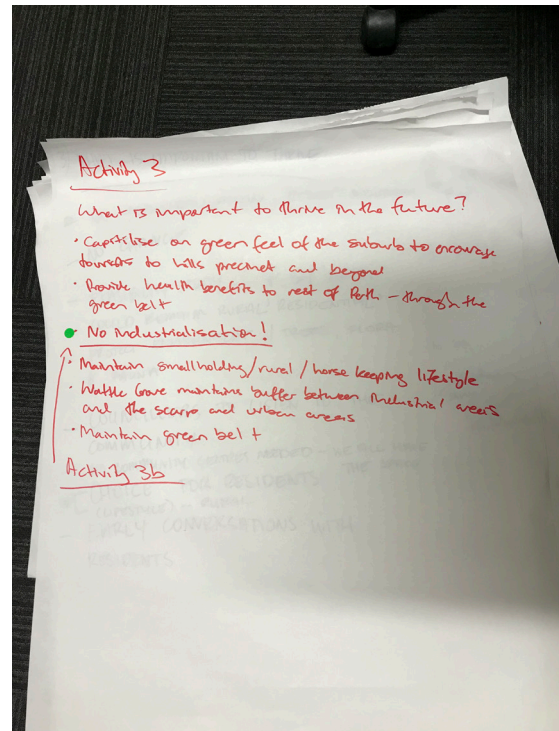 Activity 3
What is important to thrive in the future?
• Capitilise on green feel of the suburb to encourage
tourists to hills precinct and beyond
• Provide health benefits to rest of Perth – through the
green belt
• No industrialisation!
• Maintain smallholding/rural/horse keeping lifestyle
• Wattle Grove maintains buffer between industrial areas
and the scarp and urban areas
• Maintain green belt
Activity 3b
CHOICE FOR RESIDENTS
EARLY CONVERSATIONS WITH
RESIDENTS